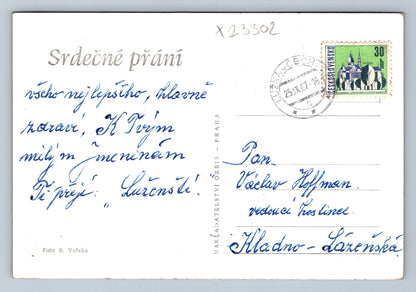 X23302
Srdečné přání
všeho nejlepšího, hlavně
zdraví, K Tvým
milým jmeninám
Ti přejí: "Luženští.
Foto B. Vařeka
NAKLADATELSTVÍ ORBIS - PRAHA
ČESKOSLOVENSKO
30
Pan.
Václav Hoffman.
vedoucí hostince.
Kladno - Lázeňská